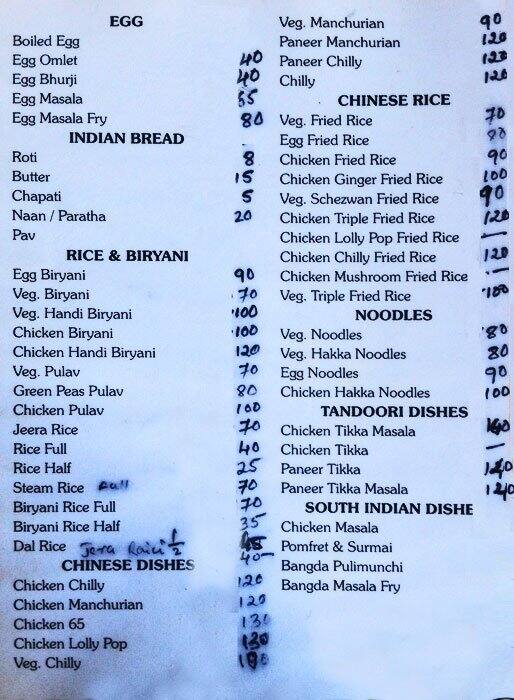 EGG
Boiled Egg
Egg Omlet 40
Egg Bhurji 40
Egg Masala 65
Egg Masala Fry 80
INDIAN BREAD
Roti 8
Butter 15
Chapati 5
Naan / Paratha 20
Pav
RICE & BIRYANI
Egg Biryani 90
Veg. Biryani 70
Veg. Handi Biryani 100
Chicken Biryani 100
Chicken Handi Biryani 120
Veg. Pulav 70
Green Peas Pulav 80
Chicken Pulav 100
Jeera Rice 70
Rice Full 40
Rice Half 25
Steam Rice Full 70
Biryani Rice Full 70
Biryani Rice Half 35
Dal Rice 45
Jera Raici 1/2 40-
CHINESE DISHES
Chicken Chilly 120
Chicken Manchurian 120
Chicken 65 130
Chicken Lolly Pop 130
Veg. Chilly
Veg. Manchurian 90
Paneer Manchurian 120
Paneer Chilly 120
Chilly 120
CHINESE RICE
Veg. Fried Rice 70
Egg Fried Rice 80
Chicken Fried Rice 90
Chicken Ginger Fried Rice 100
Veg. Schezwan Fried Rice 90
Chicken Triple Fried Rice 120
Chicken Lolly Pop Fried Rice —
Chicken Chilly Fried Rice 120
Chicken Mushroom Fried Rice —
Veg. Triple Fried Rice 100
NOODLES
Veg. Noodles 80
Veg. Hakka Noodles 80
Egg Noodles 90
Chicken Hakka Noodles 100
TANDOORI DISHES
Chicken Tikka Masala 140
Chicken Tikka —
Paneer Tikka 140
Paneer Tikka Masala 140
SOUTH INDIAN DISHE
Chicken Masala
Pomfret & Surmai
Bangda Pulimunchi
Bangda Masala Fry